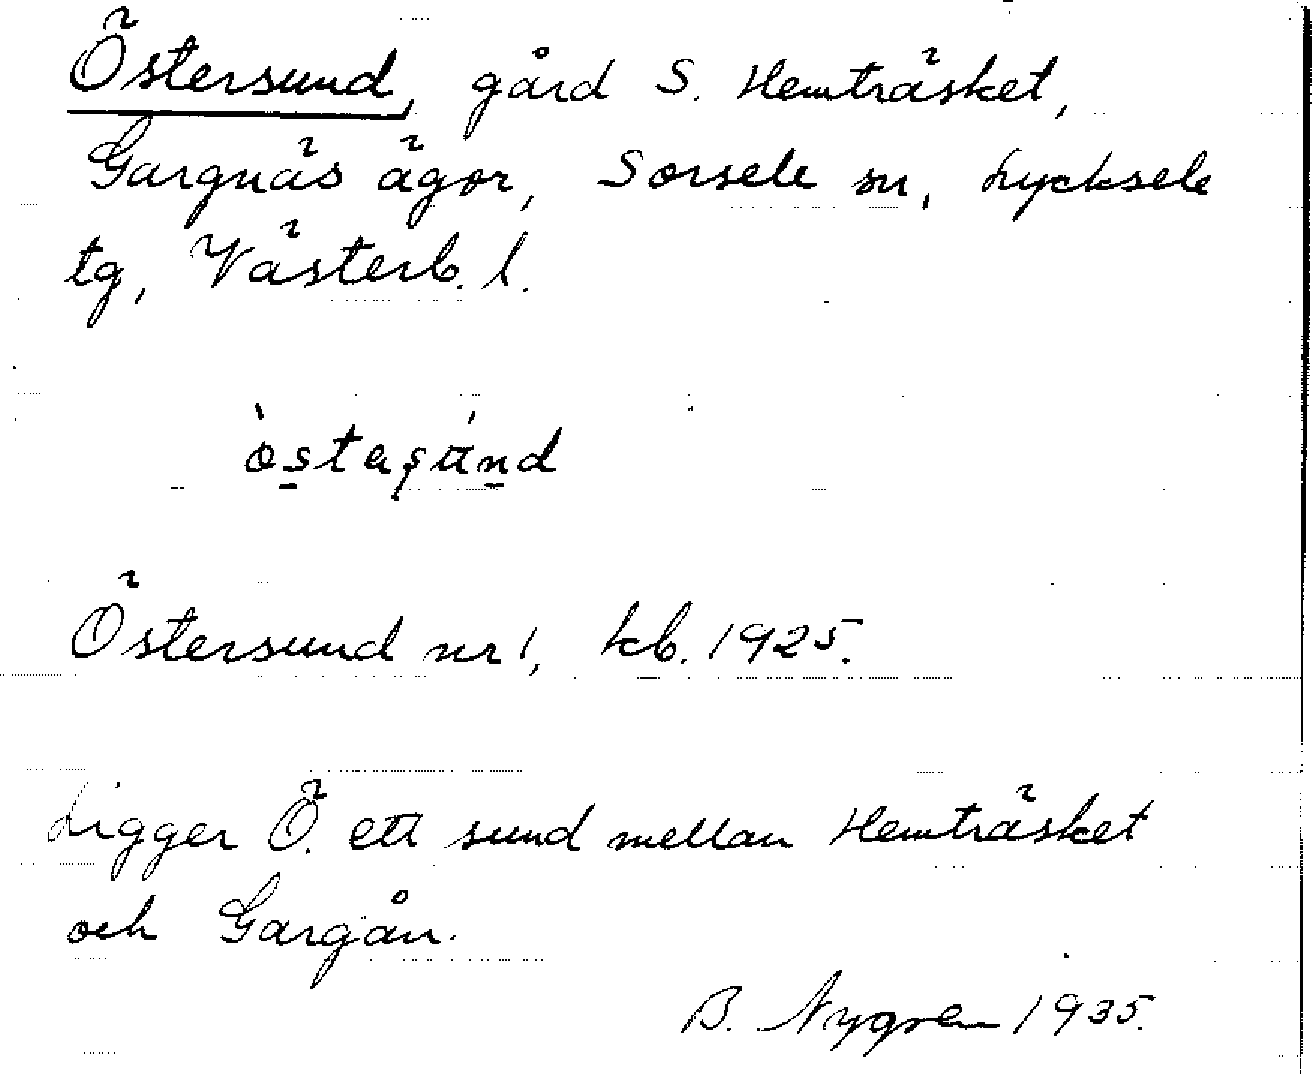 Östersund, gård S. Hemträsket,
Gargnäs ägor, Sorsele sn, Lycksele
tg, Västerb. l.
Östersund nr 1, kb. 1925.
Ligger Ö. ett sund mellan Hemträsket
och Gargån.
B. Nygren 1935.